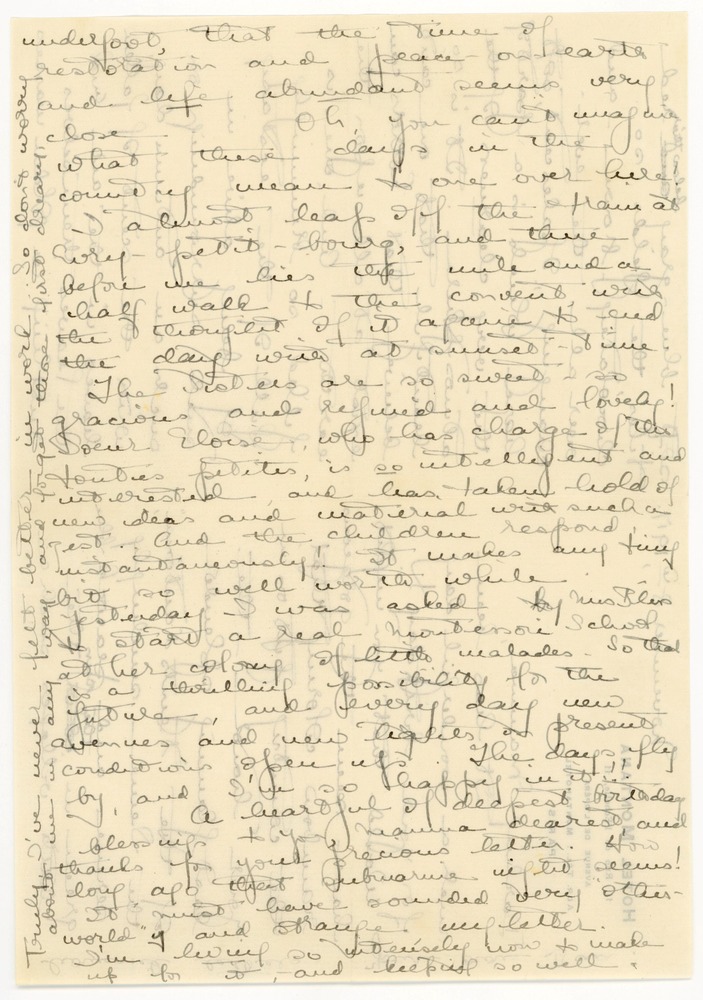 underfoot, that the time of
restoration and peace-on-earth
and life abundant seems very
close. Oh, you can't imagine
what these days in the
country mean to one over here!
I almost leap off the train at
Evry-petit-bourg, and there
before me lies the mile and a
half walk to the convent, with
the thought of it again to end
the day with at sunset-time.
The Sisters are so sweet - so
gracious and refined and lovely!
Soeur Eloise, who has charge of the
toutes petites, is so intelligent and
interested and has taken hold of
new ideas and material with such a
zest. And the children respond
instantaneously! It makes any tiny
bit so well worth while.
Yesterday I was asked by Mrs Bliss
to start a real Montessori School
at her colony of little malades. So that
is a thrilling possibility for the
future, and every day new
avenues and new lights on present
conditions open up. The days fly
by, and I'm so happy in it!!
A heartful of deepest birthday
blessings to you, Mamma dearest, and
thanks for your precious letter. How
long ago that submarine night seems!
It must have sounded very "other-
world"y and strange. my letter.
I'm living so intensely now to make
up for it, - and keeping so well.
Truly, I've never felt better - in work. So don't worry
about me in any way, and forget those first dreary